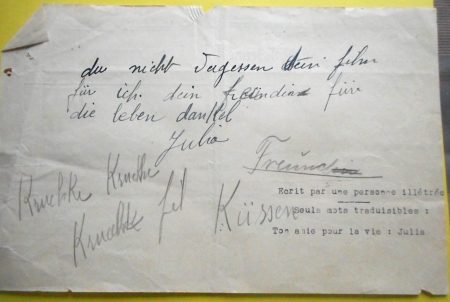 du nicht Vergessen dein fihn
für ich dein freundin für
die leben dankel
Julia
Freundin
Knuchke Knuche
Knuchte fil Küssen
Ecrit par une personne illétrée
Seuls mots traduisibles :
Ton amie pour la vie : Julia